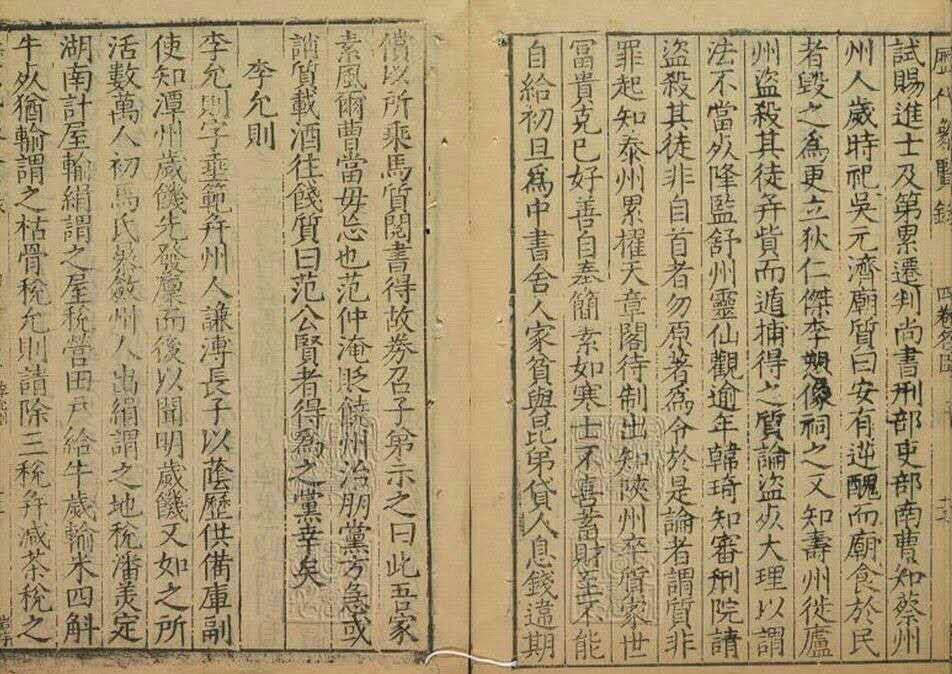 歷代
試賜進士及第累遷判尚書刑部吏部南曹知蔡州
州人歲時祀吳元濟廟質曰安有逆醜而廟食於民
者毀之為更立狄仁傑李愬像祠之又知壽州徙廬
州盜殺其徒并貲而遁捕得之質論盜死大理以謂
法不當死降監舒州靈仙觀逾年韓琦知審刑院請
盜殺其徒非自首者勿原著為令於是論者謂質非
罪起知泰州累擢天章閣待制出知陝州卒質家世
富貴克已好善自奉簡素如寒士不喜蓄財至不能
自給初旦為中書舍人家貧與昆弟貸人息錢違期
償以所乘馬質閱書得故券召子弟示之曰此吾家
素風爾曹當毋忘也范仲淹貶饒州治朋黨方急或
誚質載酒往餞質曰范公賢者得為之黨幸矣
李允則
李允則字垂範并州人謙溥長子以蔭歷供備庫副
使知潭州歲饑先發廩而後以聞明歲饑又如之所
活數萬人初馬氏暴斂州人出絹謂之地稅潘美定
湖南計屋輸絹謂之屋稅營田戶給牛歲輸米四斛
牛死猶輸謂之枯骨稅允則請除三稅并減茶稅之